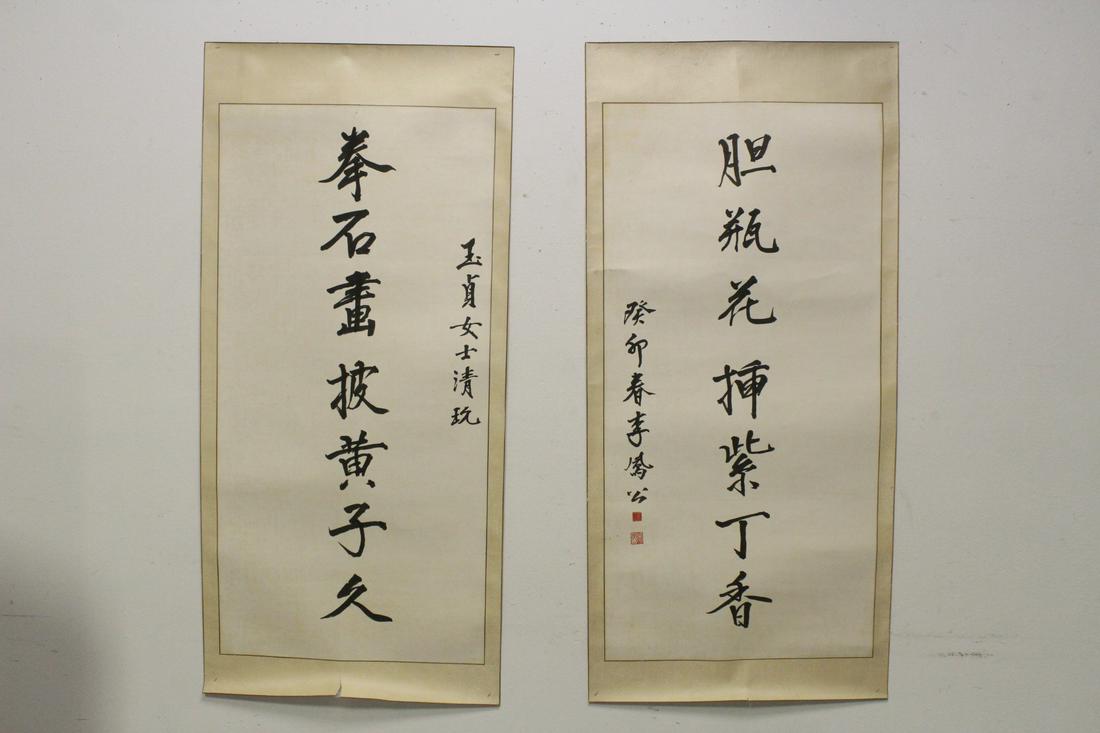 玉貞女士清玩
拳石畫披黄子久
胆瓶花挿紫丁香
癸卯春李鳳公